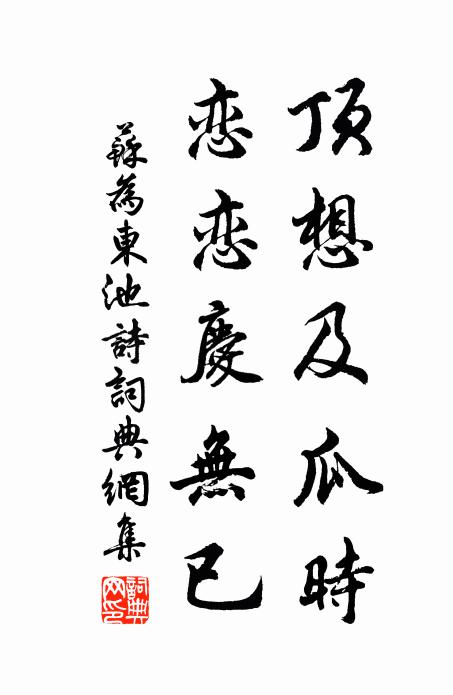 顶想及瓜時
恋恋慶無已
蘇為東池詩詞典網集
詞典网印